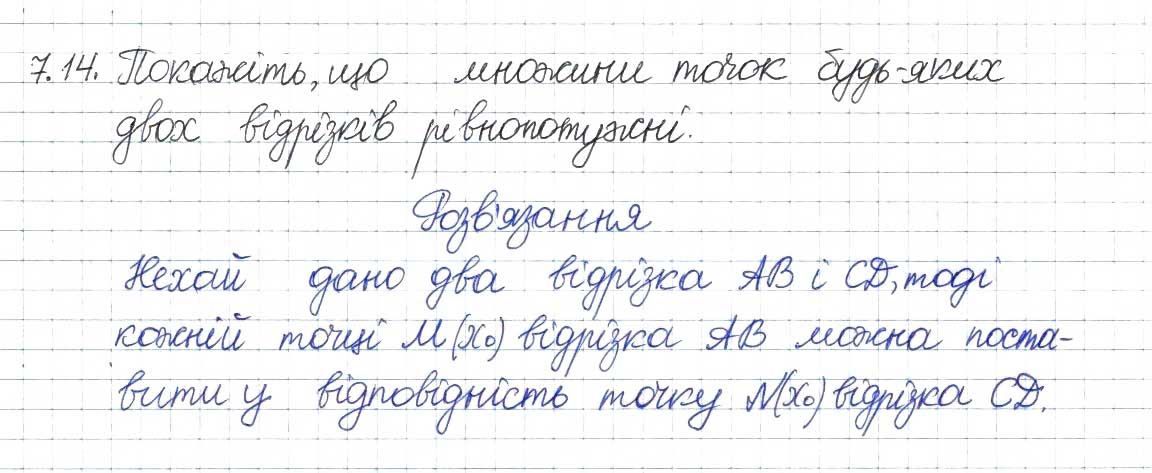 7.14. Покажіть, що множини точок будь-яких
двох відрізків рівнопотужні.
Розв'язання
Нехай дано два відрізка AB і CD, тоді
кожній точці M(x₀) відрізка AB можна поста-
вити у відповідність точку M(x₀) відрізка CD.